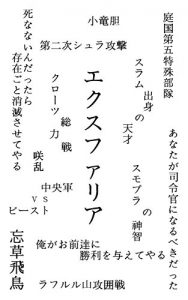 庭国第五特殊部隊
あなたが司令官になるべきだった
小竜胆
第二次シュラ攻撃
スラム出身の天才
スモブラの神智
エクスファリア
クローツ総力戦
咲乱
中央軍
vs
ビースト
死なないんだったら
存在ごと消滅させてやる
忘草飛鳥
俺がお前達に
勝利を与えてやる
ラフルル山攻囲戦